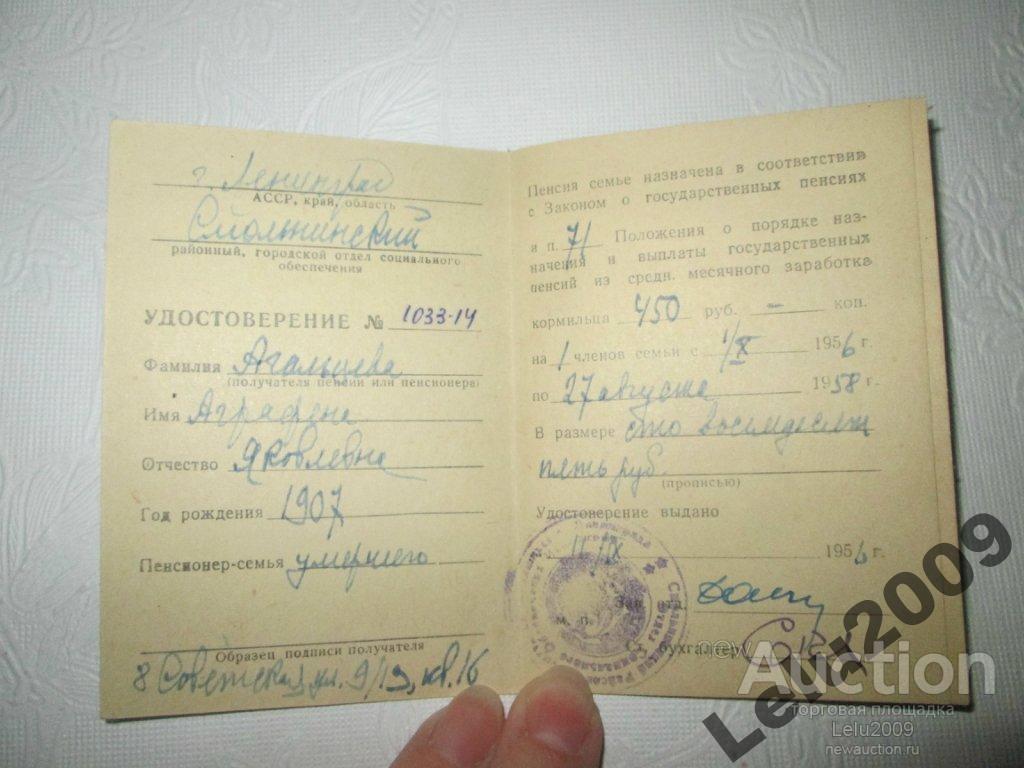 г. Ленинград
АССР, край, область
Смольнинский
районный, городской отдел социального
обеспечения
УДОСТОВЕРЕНИЕ № 1033-14
Фамилия Агальцева
(получателя пенсии или пенсионера)
Имя Аграфена
Отчество Яковлевна
Год рождения 1907
Пенсионер-семья умершего
Образец подписи получателя
8 Советская ул. 9/13, кв. 16
Пенсия семье назначена в соответствии
с Законом о государственных пенсиях
и п. 71 Положения о порядке наз-
начения и выплаты государственных
пенсий из средн. месячного заработка
кормильца 450 руб. — коп.
на 1 членов семьи с 1/X 1956 г.
по 27 августа 1958 г.
В размере сто восемдесят
пять руб.
(прописью)
Удостоверение выдано
1956 г.
Зав. отд.
м. п.
Ст. бухгалтер
newAuction
торговая площадка
Lelu2009
newauction.ru
Lelu2009